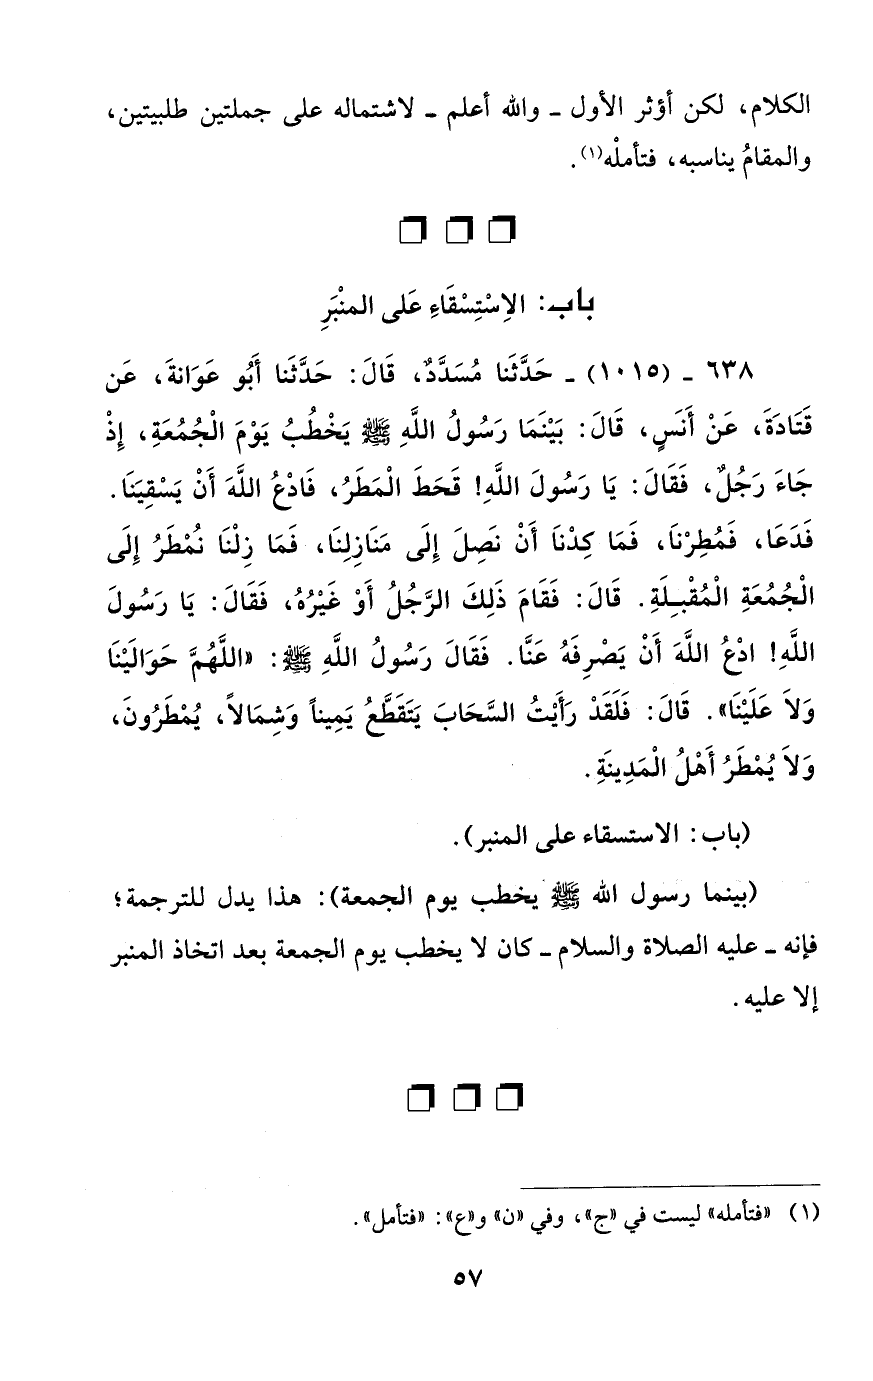 الكلام، لكن أؤثر الأول ـ والله أعلم ـ لاشتماله على جملتين طلبيتين،
والمقامُ يناسبه، فتأملْه(١).
باب: الاِسْتِسْقَاءِ عَلى المنْبَرِ
٦٣٨ ـ (١٠١٥) ـ حَدَّثَنا مُسَدَّدٌ، قَالَ: حَدَّثَنا أَبُو عَوَانةَ، عَن
قَتَادَةَ، عَنْ أَنَسٍ، قَالَ: بَيْنَمَا رَسُولُ اللَّهِ ﷺ يَخْطُبُ يَوْمَ الْجُمُعَةِ، إِذْ
جَاءَ رَجُلٌ، فَقَالَ: يَا رَسُولَ اللَّهِ! قَحَطَ الْمَطَرُ، فَادْعُ اللَّهَ أَنْ يَسْقِيَنَا.
فَدَعَا، فَمُطِرْنَا، فَمَا كِدْنَا أَنْ نَصِلَ إِلَى مَنَازِلِنَا، فَمَا زِلْنَا نُمْطَرُ إِلَى
الْجُمُعَةِ الْمُقْبِلَةِ. قَالَ: فَقَامَ ذَلِكَ الرَّجُلُ أَوْ غَيْرُهُ، فَقَالَ: يَا رَسُولَ
اللَّهِ! ادْعُ اللَّهَ أَنْ يَصْرِفَهُ عَنَّا. فَقَالَ رَسُولُ اللَّهِ ﷺ: «اللَّهُمَّ حَوَالَيْنَا
وَلاَ عَلَيْنَا». قَالَ: فَلَقَدْ رَأَيْتُ السَّحَابَ يَتَقَطَّعُ يَمِيناً وَشِمَالاً، يُمْطَرُونَ،
وَلاَ يُمْطَرُ أَهْلُ الْمَدِينَةِ.
(باب: الاستسقاء على المنبر).
(بينما رسول الله ﷺ يخطب يوم الجمعة): هذا يدل للترجمة؛
فإنه ـ عليه الصلاة والسلام ـ كان لا يخطب يوم الجمعة بعد اتخاذ المنبر
إلا عليه.
(١) «فتأمله» ليست في «ج»، وفي «ن» و«ع»: «فتأمل».
٥٧